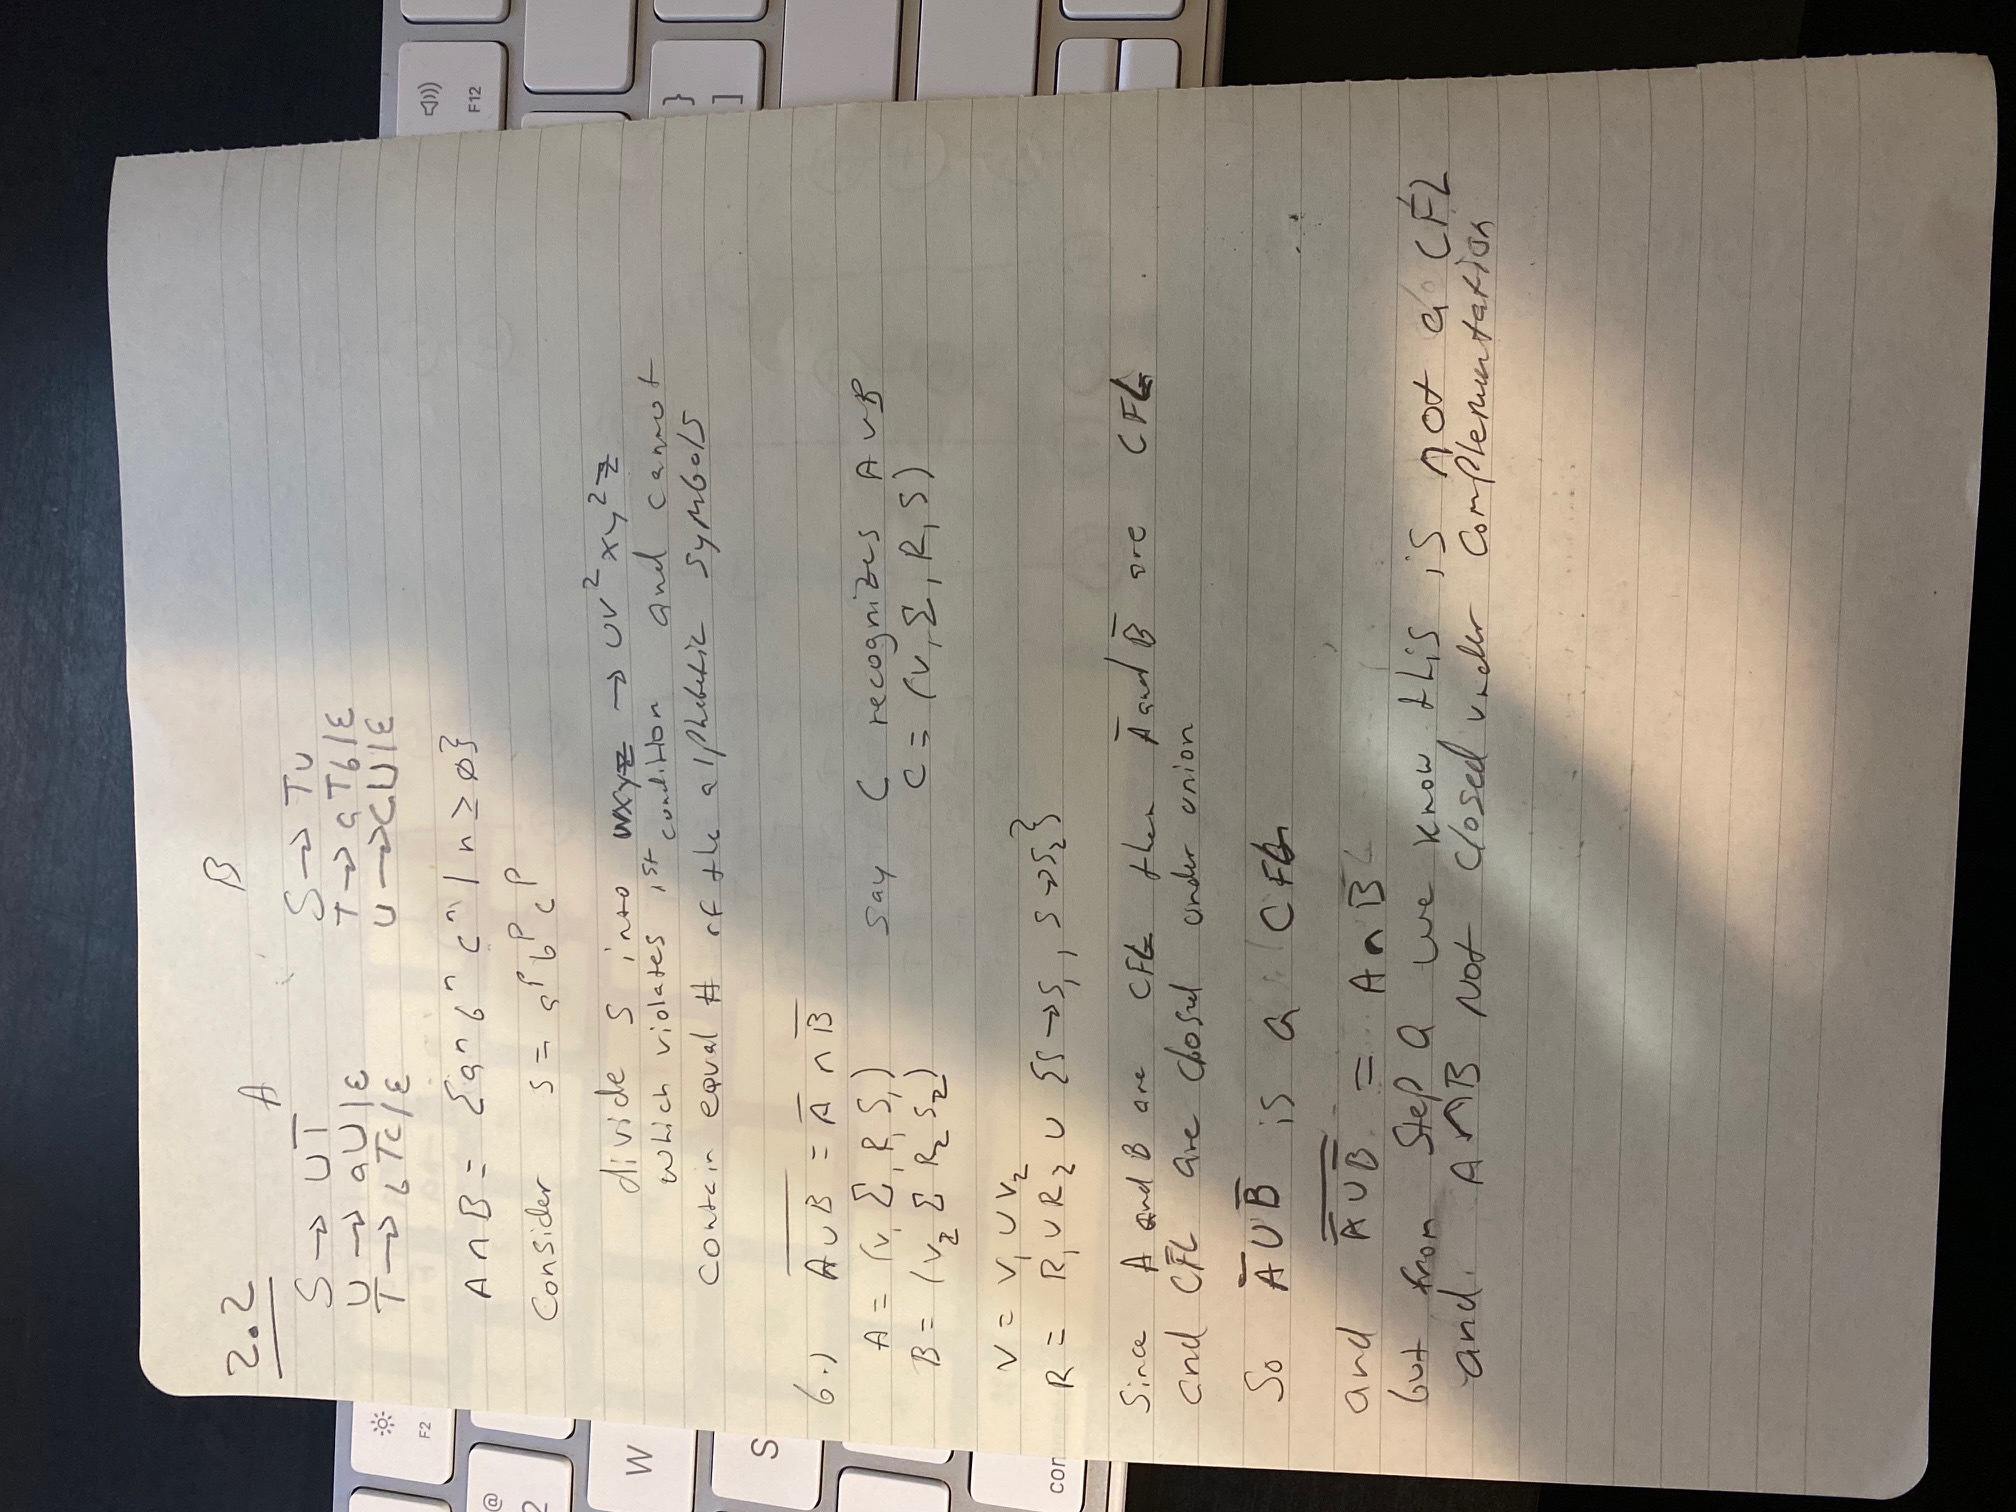 2.2
A B
S → UT S → TU
U → aU|ε T → aTb|ε
T → bTc|ε U → cU|ε
A ∩ B = {aⁿ bⁿ cⁿ | n ≥ ø}
Consider s = aᵖ bᵖ cᵖ
divide s into uvxyz → uv²xy²z
which violates 1st condition and cannot
contain equal # of the alphabetic symbols
b.) \overline{A∪B} = A̅ ∩ B̅
A = (V₁ Σ, R, S₁) Say C recognizes A∪B
B = (V₂ Σ R₂ S₂) C = (V, Σ, R, S)
V = V₁ ∪ V₂
R = R₁ ∪ R₂ ∪ {S→S₁, S→S₂}
Since A and B are CFL then A̅ and B̅ are CFL
and CFL are closed under union
So A̅ ∪ B̅ is a CFL
and \overline{A̅ ∪ B̅} = A ∩ B
but from Step a we know this is not a CFL
and. A ∩ B Not closed under Complementation
F2
@
2
W
S
com
F12
}
]